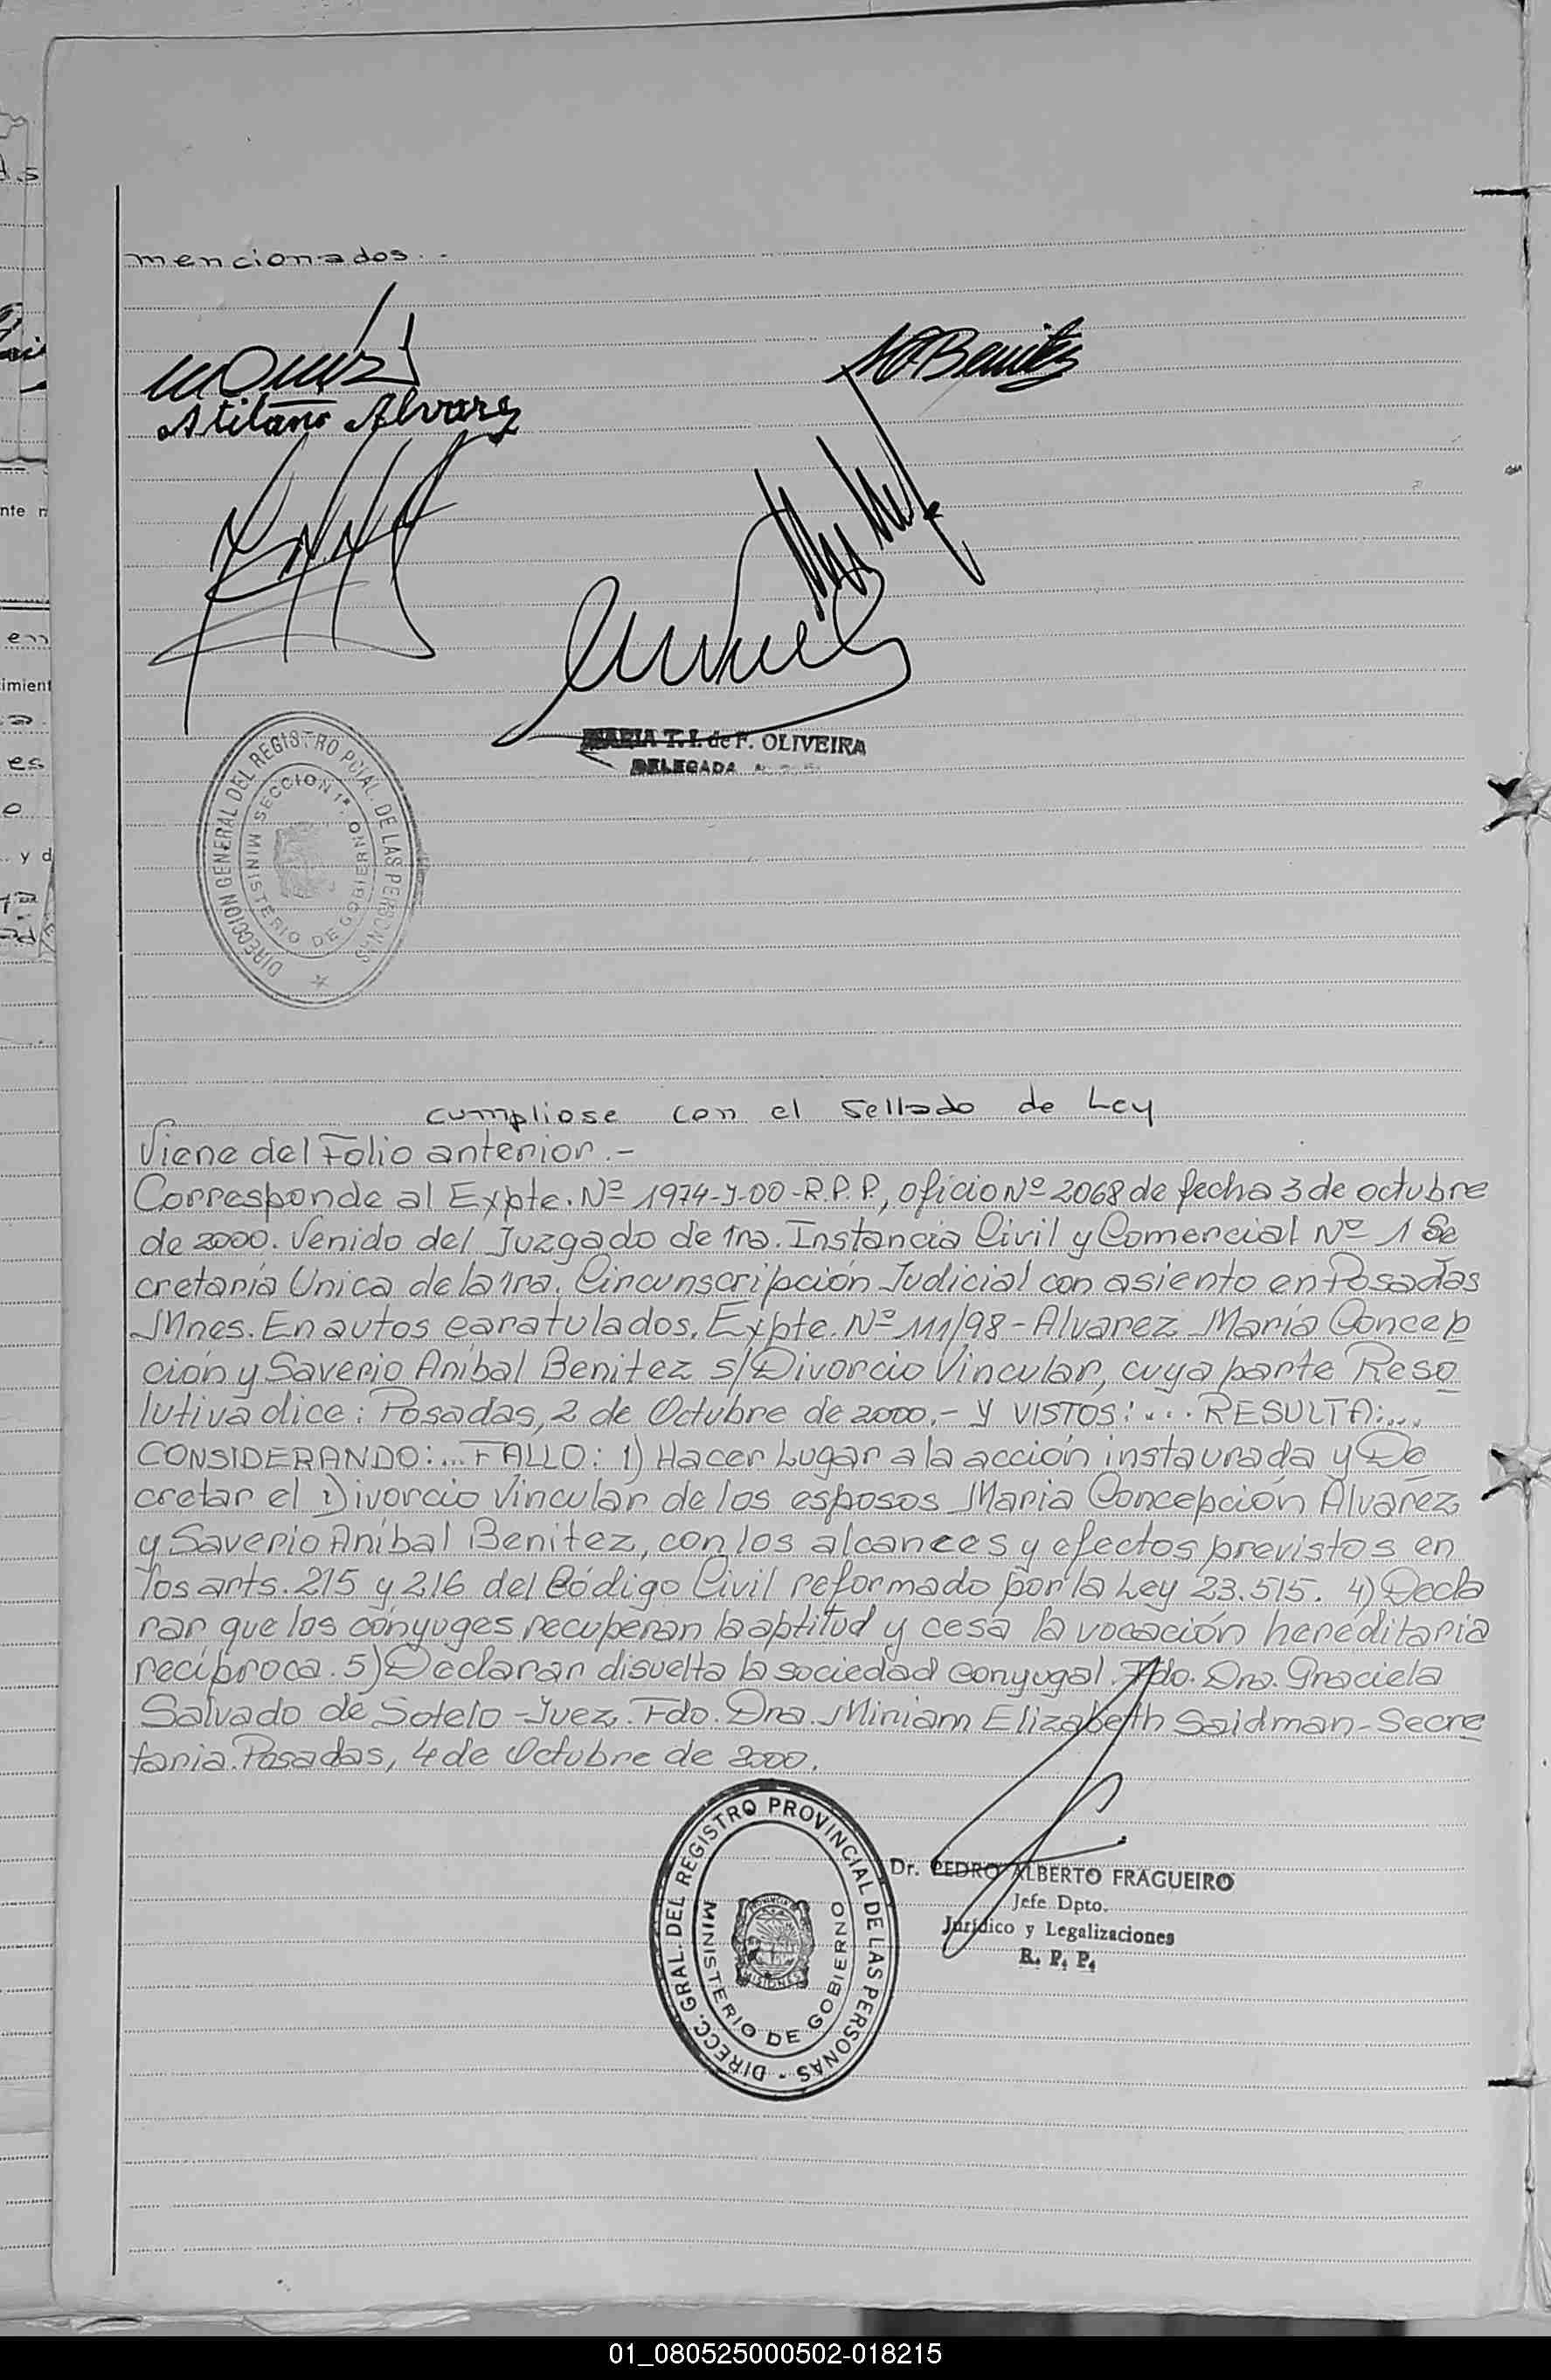 mencionados.-
SABenitez
Atilano Alvarez
MARIA T. I. de F. OLIVEIRA
DELEGADA
DIRECCION GENERAL DEL REGISTRO PCIAL. DE LAS PERSONAS
SECCION 1ª. MINISTERIO DE GOBIERNO
cumpliose con el sellado de Ley
Viene del Folio anterior.-
Corresponde al Expte. Nº 1974-Y-00-R.P.P., oficio Nº 2068 de fecha 3 de octubre
de 2000. Venido del Juzgado de 1ra. Instancia Civil y Comercial Nº 1 Se
cretaría Unica de la 1ra. Circunscripción Judicial con asiento en Posadas
Mnes. En autos caratulados, Expte. Nº 111/98 - Alvarez María Concep
ción y Saverio Aníbal Benitez s/Divorcio Vincular, cuya parte Reso
lutiva dice: Posadas, 2 de Octubre de 2000.- Y VISTOS:... RESULTA:...
CONSIDERANDO:... FALLO: 1) Hacer Lugar a la acción instaurada y De
cretar el Divorcio Vincular de los esposos Maria Concepción Alvarez
y Saverio Aníbal Benitez, con los alcances y efectos previstos en
los arts. 215 y 216 del Código Civil reformado por la Ley 23.515. 4) Decla
rar que los cónyuges recuperan la aptitud y cesa la vocación hereditaria
recíproca. 5) Declarar disuelta la sociedad conyugal. Fdo. Dra. Graciela
Salvado de Sotelo - Juez. Fdo. Dra. Miriam Elizabeth Saidman - Secre
taria. Posadas, 4 de Octubre de 2000.
DIRECC. GRAL. DEL REGISTRO PROVINCIAL DE LAS PERSONAS -
MINISTERIO DE GOBIERNO
Dr. PEDRO ALBERTO FRAGUEIRO
Jefe Dpto.
Jurídico y Legalizaciones
R. P. P.
01_080525000502-018215